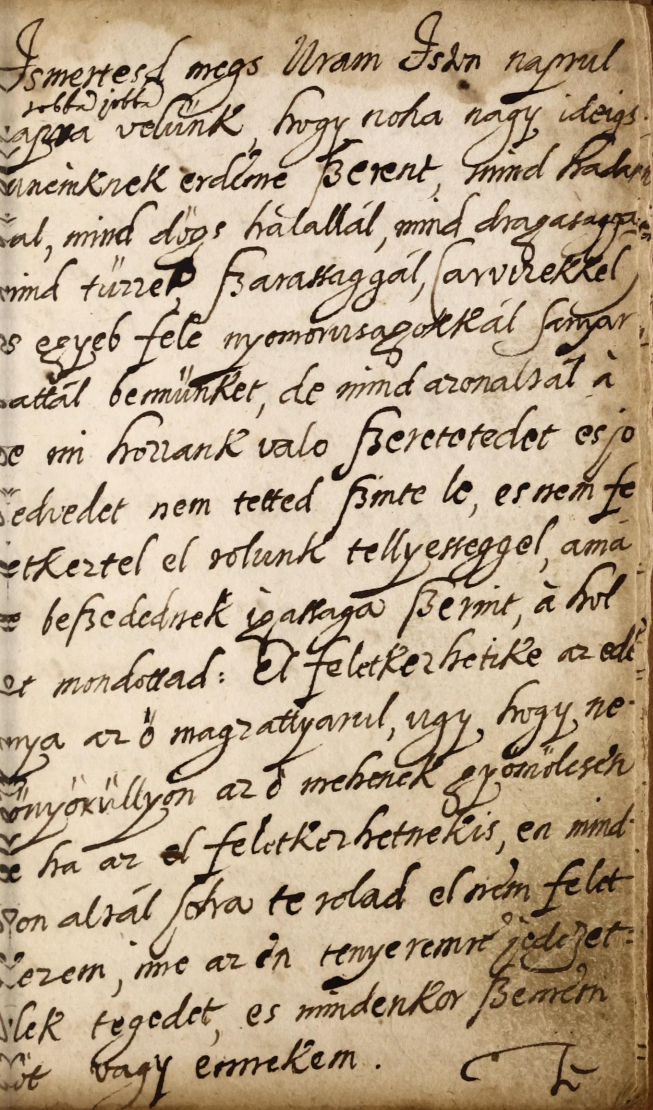 Ismertesd megs Uram Istn naprul
jobba jobba
apra velünk, hogy noha nagy ideigs
uneinknek erdeme szerent, mind hadan
al, mind dögs halallál, mind dragasagga
ind tüzzel, szarassaggál, sarvizekkel
s egyeb fele nyomorusagokkál sanyar
attál bennünket, de mind azonaltál à
e mi hozzank valo szeretetedet es jo
edvedet nem tetted szinte le, es nem fe
etkeztel el rolunk tellyesseggel, ama
beszedednek igassaga szerint, à hol
t mondottad: El feletkezhetike az edes
nya az ö magzattyarul, ugy, hogy ne
önyörüllyön az ö mehenek gyömölcsén
e ha az el feletkezhetnekis, en mind
on altál soha te rolad el nem felet
ezem, ime az én tenyeremre jedzet=
lek tegedet, es mindenkor szemem
öt vagy énnekem.